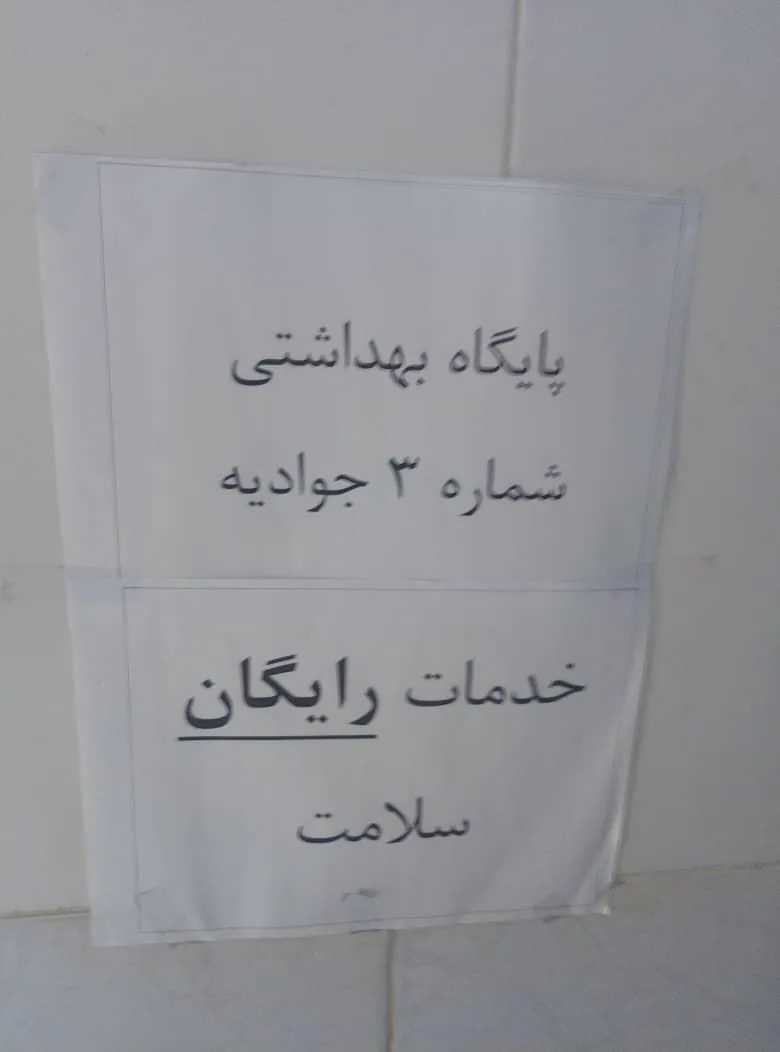 پایگاه بهداشتی
شماره ۳ جوادیه
خدمات رایگان
سلامت